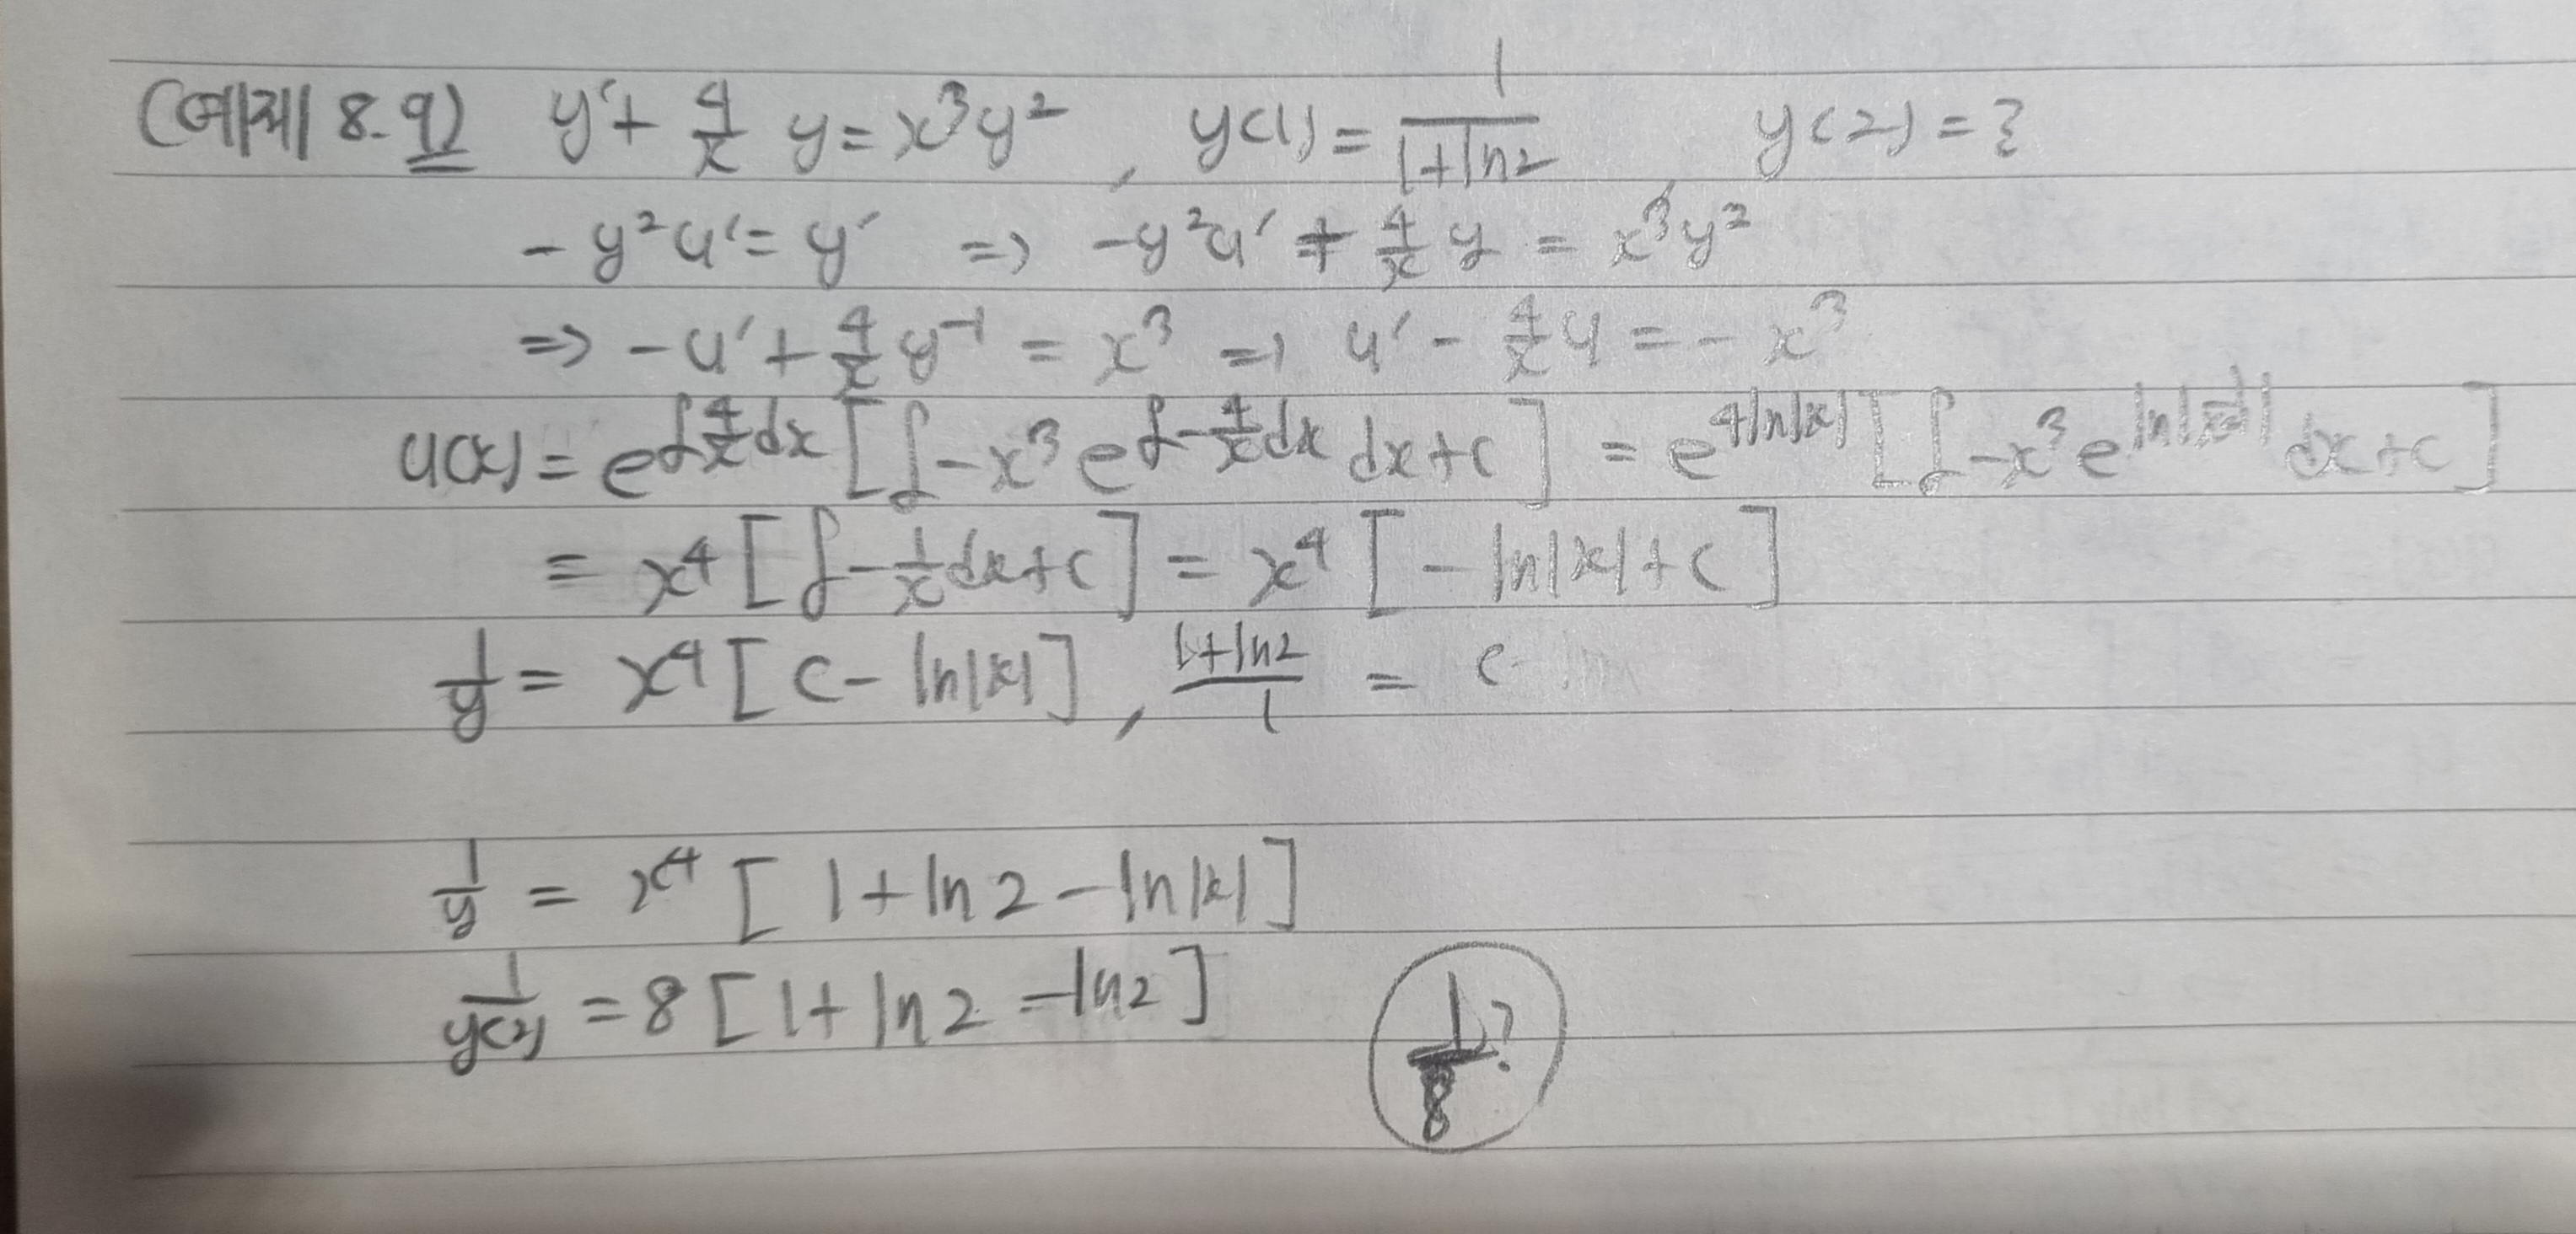 (예제 8.9) y'+ 4/x y = x³y² , y(1) = 1/(1+ln2) y(2) = ?
-y²u' = y' => -y²u' + 4/x y = x³y²
=> -u' + 4/x y⁻¹ = x³ => u' - 4/x u = -x³
u(x) = e^∫4/x dx [∫-x³ e^∫-4/x dx dx+c] = e^4ln|x| [∫-x³ e^ln|x⁻⁴| dx+c]
= x⁴ [∫-1/x dx+c] = x⁴ [-ln|x|+c]
1/y = x⁴ [c - ln|x|] , (1+ln2)/1 = c
1/y = x⁴ [1+ln2 - ln|x|]
1/y(2) = 8 [1+ln2 - ln2] 1/8?